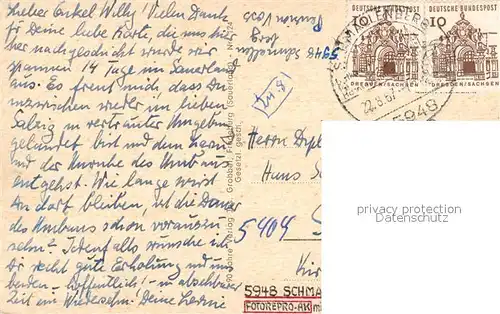 Lieber Onkel Willy! Vielen Dank
für Deine liebe Karte, die uns hier-
her nachgeschickt wurde. Wir
spannen 14 Tage im Sauerland
aus. Es freut mich, dass Du
inzwischen wieder im lieben
Salzig in vertrauter Umgebung
gelandet bist und dem Lärm
und der Unruhe des Umbaus
entgehst. Wie lange wirst
Du dort bleiben, ist die Dauer
des Umbaus schon vorauszu-
sehn? Jedenfalls wünsche ich
Dir recht gute Erholung und uns
beiden - hoffentlich - in absehbarer
Zeit ein Wiedersehn! Deine
5948 Schmallen
berg
Pension Voss
Grobbel, Fredeburg (Sauerland)
Gesetzl. gesch.
90 Jahre Verlag
DEUTSCHE BUNDESPOST
DRESDEN/SACHSEN
10
DEUTSCHE BUNDESPOST
DRESDEN/SACHSEN
22.8.67
5948
Herrn Dipl
Hans
5404
privacy protection
Datenschutz
5948 SCHMA
FOTOREPRO-AK